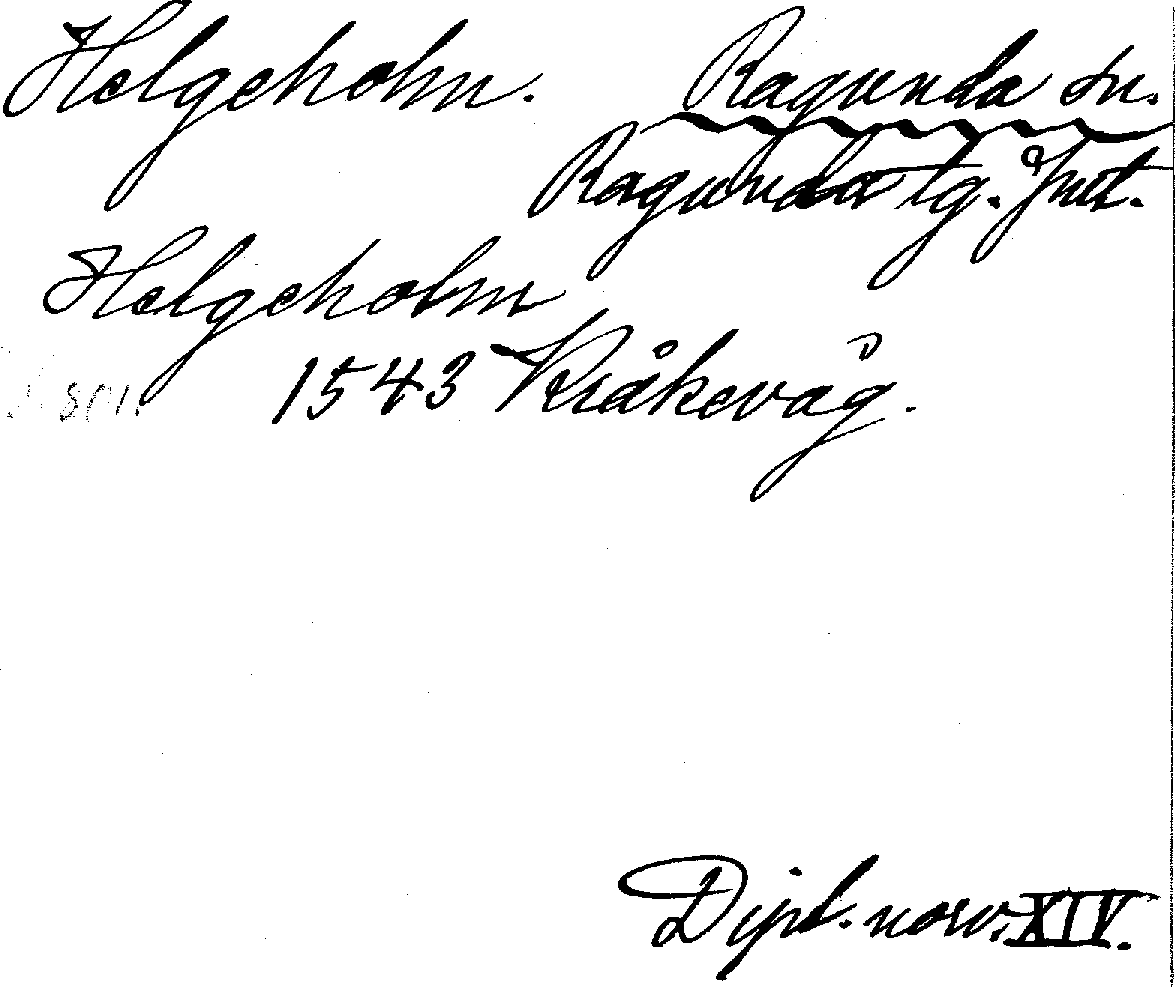 Helgeholm. Ragunda sn.
Ragunda tg. Jmt.
Helgeholm
1543 Kråkevåg.
Dipl. norv. XIV.